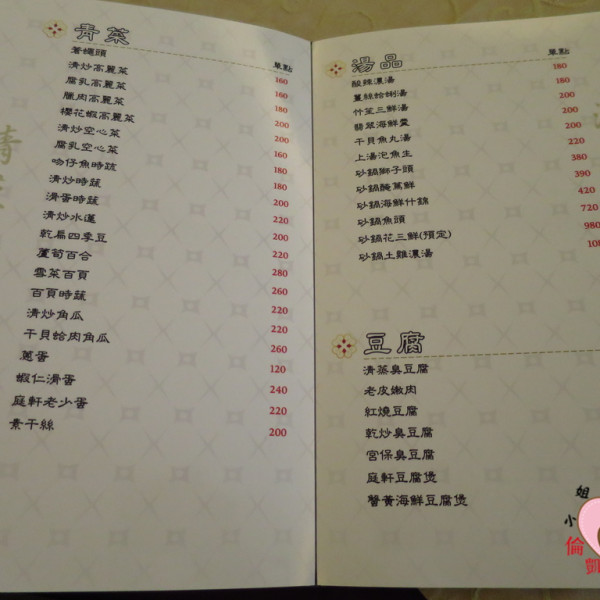 青菜
單點
蒼蠅頭 160
清炒高麗菜 160
腐乳高麗菜 180
臘肉高麗菜 200
櫻花蝦高麗菜 200
清炒空心菜 160
腐乳空心菜 180
吻仔魚時蔬 180
清炒時蔬 200
滑蛋時蔬 220
清炒水蓮 200
乾扁四季豆 220
蘆筍百合 280
雪菜百頁 260
百頁時蔬 220
清炒角瓜 220
干貝蛤肉角瓜 260
蔥蛋 120
蝦仁滑蛋 240
庭軒老少蛋 220
素干絲 200
湯品
單點
酸辣濃湯 180
薑絲蛤蜊湯 180
竹笙三鮮湯 200
翡翠海鮮羹 200
干貝魚丸湯 200
上湯泡魚生 220
砂鍋獅子頭 380
砂鍋醃篤鮮 390
砂鍋海鮮什錦 420
砂鍋魚頭 720
砂鍋花三鮮(預定) 980
砂鍋土雞濃湯
豆腐
清蒸臭豆腐
老皮嫩肉
紅燒豆腐
乾炒臭豆腐
宮保臭豆腐
庭軒豆腐煲
蟹黃海鮮豆腐煲
小姐
倫凱